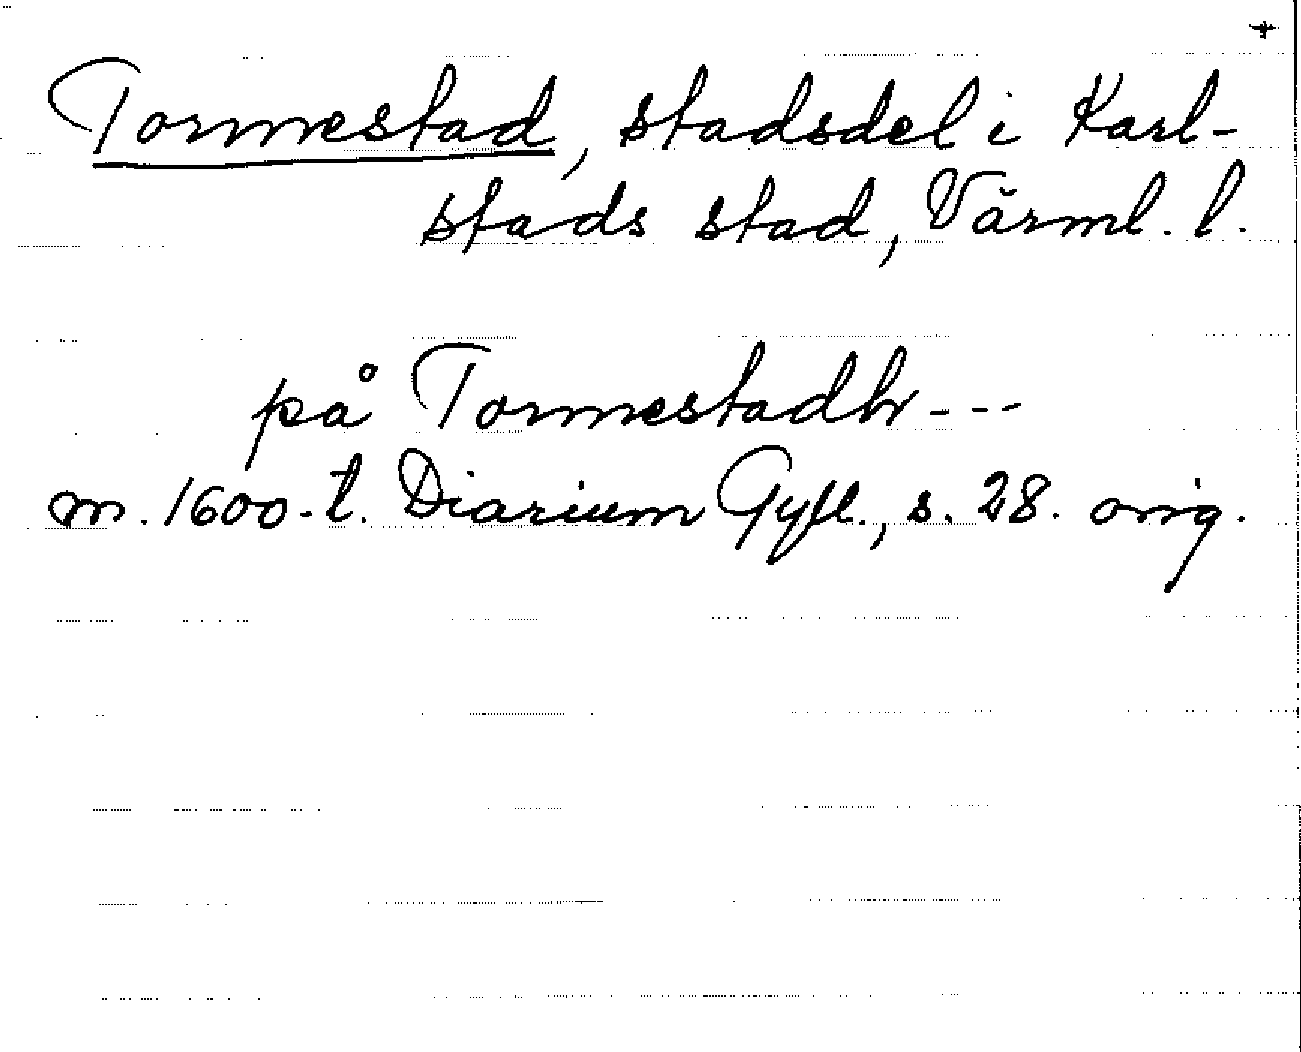 Tormestad, stadsdel i Karl-
stads stad, Värml. l.
på Tormestadh---
m. 1600-t. Diarium Gyll., s. 28. orig.